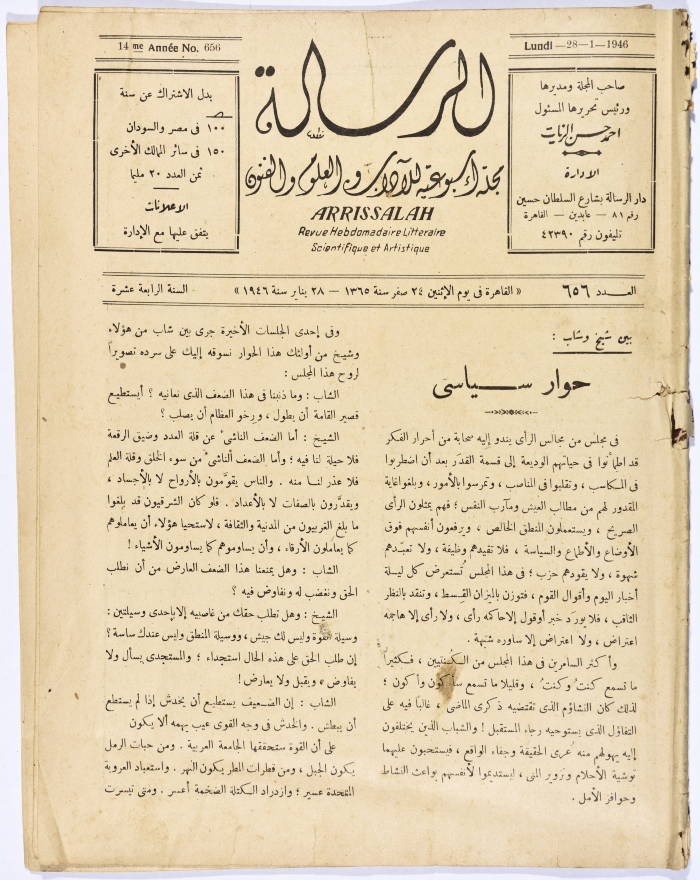 14 me Année No. 656
Lundi —28—1—1946
بدل الاشتراك عن سنة
١٠٠ فى مصر والسودان
١٥٠ فى سائر الممالك الأخرى
ثمن العدد ٢٠ مليما
الاعلانات
يتفق عليها مع الإدارة
الرسالة
مجلة أسبوعية للآداب والعلوم والفنون
ARRISSALAH
Revue Hebdomadaire Litteraire
Scientifique et Artistique
صاحب المجلة ومديرها
ورئيس تحريرها المسئول
احمد حسن الزيات
الادارة
دار الرسالة بشارع السلطان حسين
رقم ٨١ — عابدين — القاهرة
تليفون رقم ٤٢٣٩٠
العـدد ٦٥٦
« القاهرة فى يوم الإثنين ٢٤ صفر سنة ١٣٦٥ — ٢٨ يناير سنة ١٩٤٦ »
السنة الرابعة عشرة
بين شيخ وشاب :
حوار سـياسى
فى مجلس من مجالس الرأى يندو إليه صحابة من أحرار الفكر
قد اطمأنوا فى حياتهم الوديعة إلى قسمة القدَر بعد أن اضطربوا
فى المكاسب ، وتقلبوا فى المناصب ، وتمرسوا بالأمور ، وبلغوا غاية
المقدور لهم من مطالب العيش ومآرب النفس ؛ فهم يمثلون الرأى
الصريح ، ويستعملون المنطق الخالص ، ويرفعون أنفسهم فوق
الأوضاع والأطماع والسياسة ، فلا تقيدهم وظيفة ، ولا تعبـّدهم
شهوة ، ولا يقودهم حزب ؛ فى هذا المجلس تُستعرض كل ليـلة
أخبار اليوم وأقوال القوم ، فتوزن بالميزان القِسط ، وتنقد بالنظر
الثاقب ، فلا يورَد خبر أو قول إلا حاكمه رأى ، ولا رأى إلا هاجمه
اعتراض ، ولا اعتراض إلا ساوره شبهة .
وأكثر السامرين فى هذا المجلس من الكُنتيين ، فـكثيراً
ما تسمع كنتُ وكنتُ ، وقليلا ما تسمع سأكون وأكون ؛
لذلك كان التشاؤم الذى تقتضيه ذكرى الماضى ، غالبًا فيه على
التفاؤل الذى يستوحيه رجاء المستقبل ! والشباب الذين يختلفون
إليه يهولهم منه عُرى الحقيقة وجفاء الواقع ، فيستحبون عليهما
توشية الأحلام وتزوير المنى ، ليستديموا لأنفسهم بواعث النشاط
وحوافز الأمل .
وفى إحدى الجلسات الأخيرة جرى بين شاب من هؤلاء
وشيخ من أولئك هذا الحوار نسوقه إليك على سرده تصويراً
لروح هذا المجلس :
الشاب : وما ذنبنا فى هذا الضعف الذى نعانيه ؟ أيستطيع
قصير القامة أن يطول ، ورخو العظام أن يصلب ؟
الشيخ : أما الضعف الناشئ عن قلة العدد وضيق الرقعة
فلا حيلة لنا فيه ؛ وأما الضعف الناشئ من سوء الخلق وقلة العلم
فلا عذر لنـا منه . والناس يقوَّمون بالأرواح لا بالأجساد ،
ويقدَّرون بالصفات لا بالأعداد . فلو كان الشرقيون قد بلغوا
ما بلغ الغربيون من المدنية والثقافة ، لاستحيا هؤلاء أن يعاملوهم
كما يعاملون الأرقاء ، وأن يساوموهم كما يساومون الأشياء !
الشاب : وهل يمنعنا هذا الضعف العارض من أن نطلب
الحق ونغضب له ونفاوض فيه ؟
الشيخ : وهل نطلب حقك من غاصبيه إلا بإحدى وسيلتين :
وسيلة القوة وليس لك جيش ، ووسيلة المنطق وليس عندك ساسة ؟
إن طلب الحق على هذه الحال استجداء ؛ والمستجدى يسأل ولا
يفاوض ، ويقبل ولا يعارض !
الشاب : إن الضـعيف يستطيع أن يخدش إذا لم يستطع
أن يبطش . والخدش فى وجه القوى عيب يهمه ألا يكون
على أن القوة ستحققها الجامعة العربية . ومن حبات الرمل
يكون الجبل ، ومن قطرات المطر يكون النهر . واستعباد العروبة
المتحدة عسير ؛ وازدراد الكتلة الضخمة أعسر . ومتى تيسرت